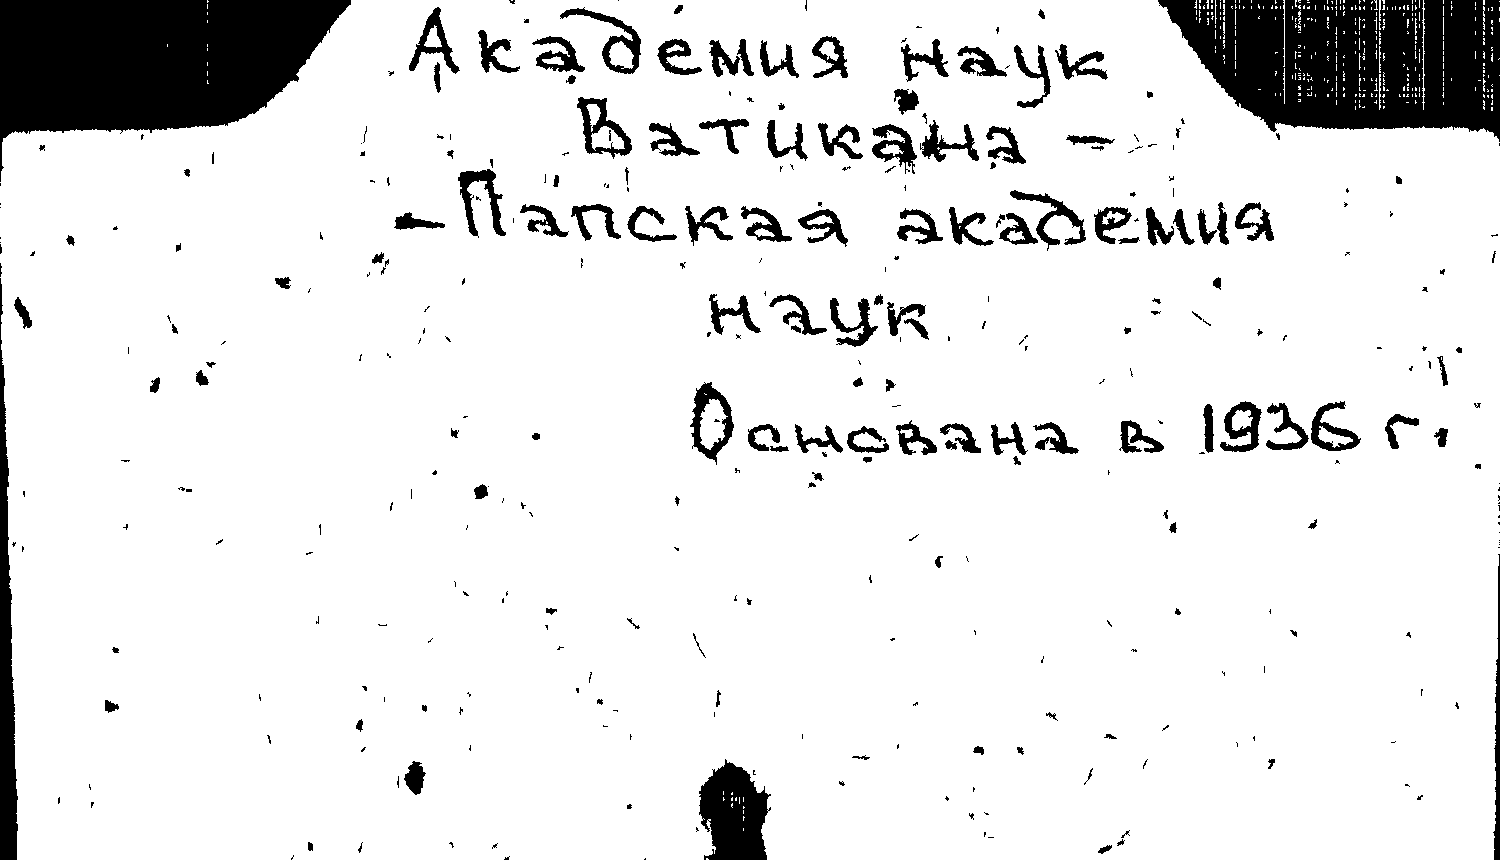 Академия наук
Ватикана -
- Папская академия
наук
Основана в 1936 г.